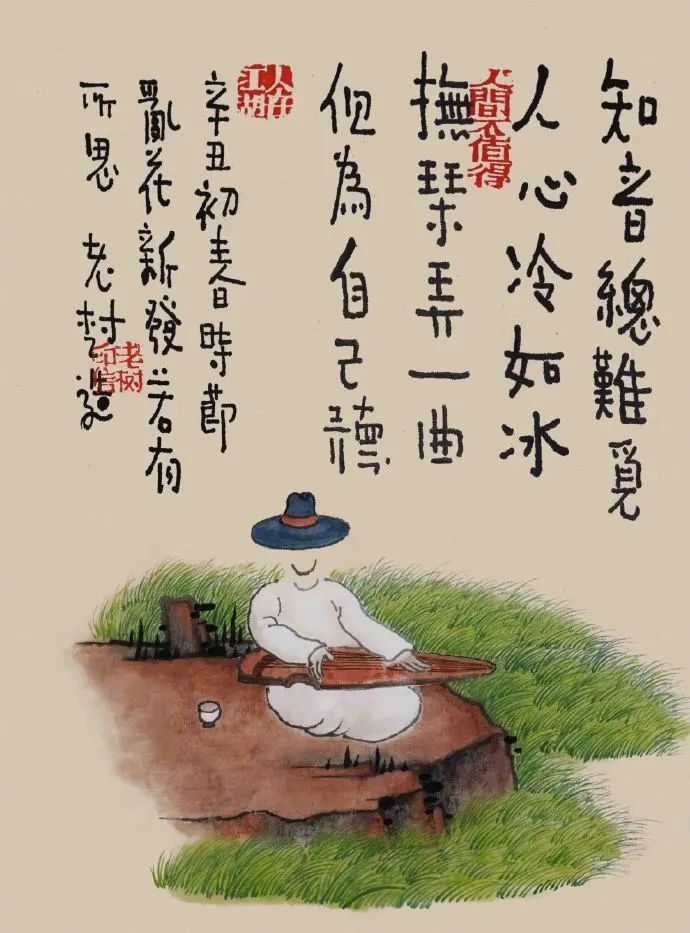 知音總難覓
人心冷如冰
撫琹弄一曲
但為自己聽
辛丑初春時節
亂花新發若有
所思 老樹造
人間不值得
人在江湖
老树